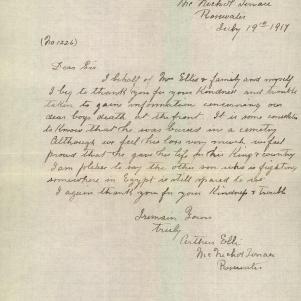 Mc Nichol Terrace
Rosewater
July 19th 1917
(No 1226)
Dear Sir
I behalf of Mrs Ellis & family and myself
I beg to thank you for your Kindness and trouble
taken to gain information concerning our
dear boys death at the front. It is some
to Know that he was buried in a cemetry
Although we feel his loss very much, we feel
proud that he gave his life for his King & country
I am please to say the other son who is fighting
somewhere in Egypt is still spared to us
I again thank you for your Kindness & trouble
I remain Yours
truly
Arthur Ellis
Mc Nichol Terrace
Rosewater